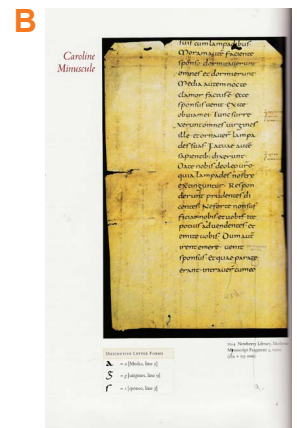 B
Caroline
Minuscule
fuit cum lampadibus
Moram autē faciente
sponso dormitauerunt
omnes et dormierunt
Media autem nocte
clamor factus ē ecce
sponsus uenit exite
obuiam ei Tunc surre
xerunt omnes uirgines
ille et ornauer lampa
des suas Fatuae autē
sapientib dixerunt
Date nobis deoleo uro
quia lampades nostre
extinguntur Respon
derunt prudentes di
centes Ne forte non suf
ficiat nobis et uobis ite
potius ad uendentes et
emite uobis Dum autē
irent emere uenit
sponsus et quae parate
erant intrauer cum eo
Newberry Library, Medieval
Manuscript Fragment
Distinctive Letter Forms
= a [Media, line 5]
= g [uirgines, line 9]
= s [sponso, line 3]